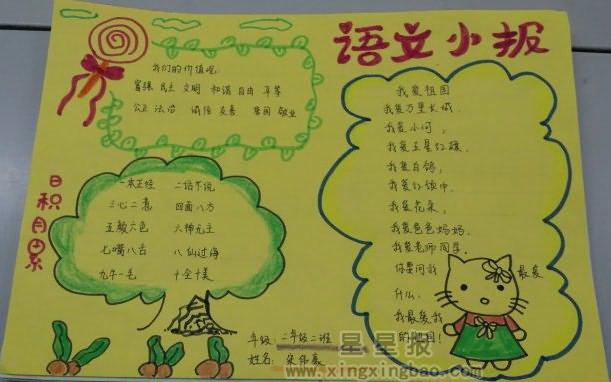 语文小报
我们的价值观
富强 民主 文明 和谐 自由 平等
公正 法治 诚信 友善 爱国 敬业
日积月累
一本正经 二话不说
三心二意 四面八方
五颜六色 六神无主
七嘴八舌 八仙过海
九牛一毛 十全十美
我爱祖国
我爱万里长城,
我爱小河,
我爱五星红旗,
我爱白鸽,
我爱红领巾,
我爱花朵,
我爱爸爸妈妈,
我爱老师同学,
你要问我 最爱
什么,
我最爱我
的祖国!
年级:二年级二班
姓名:
星星报
www.xingxingbao.com